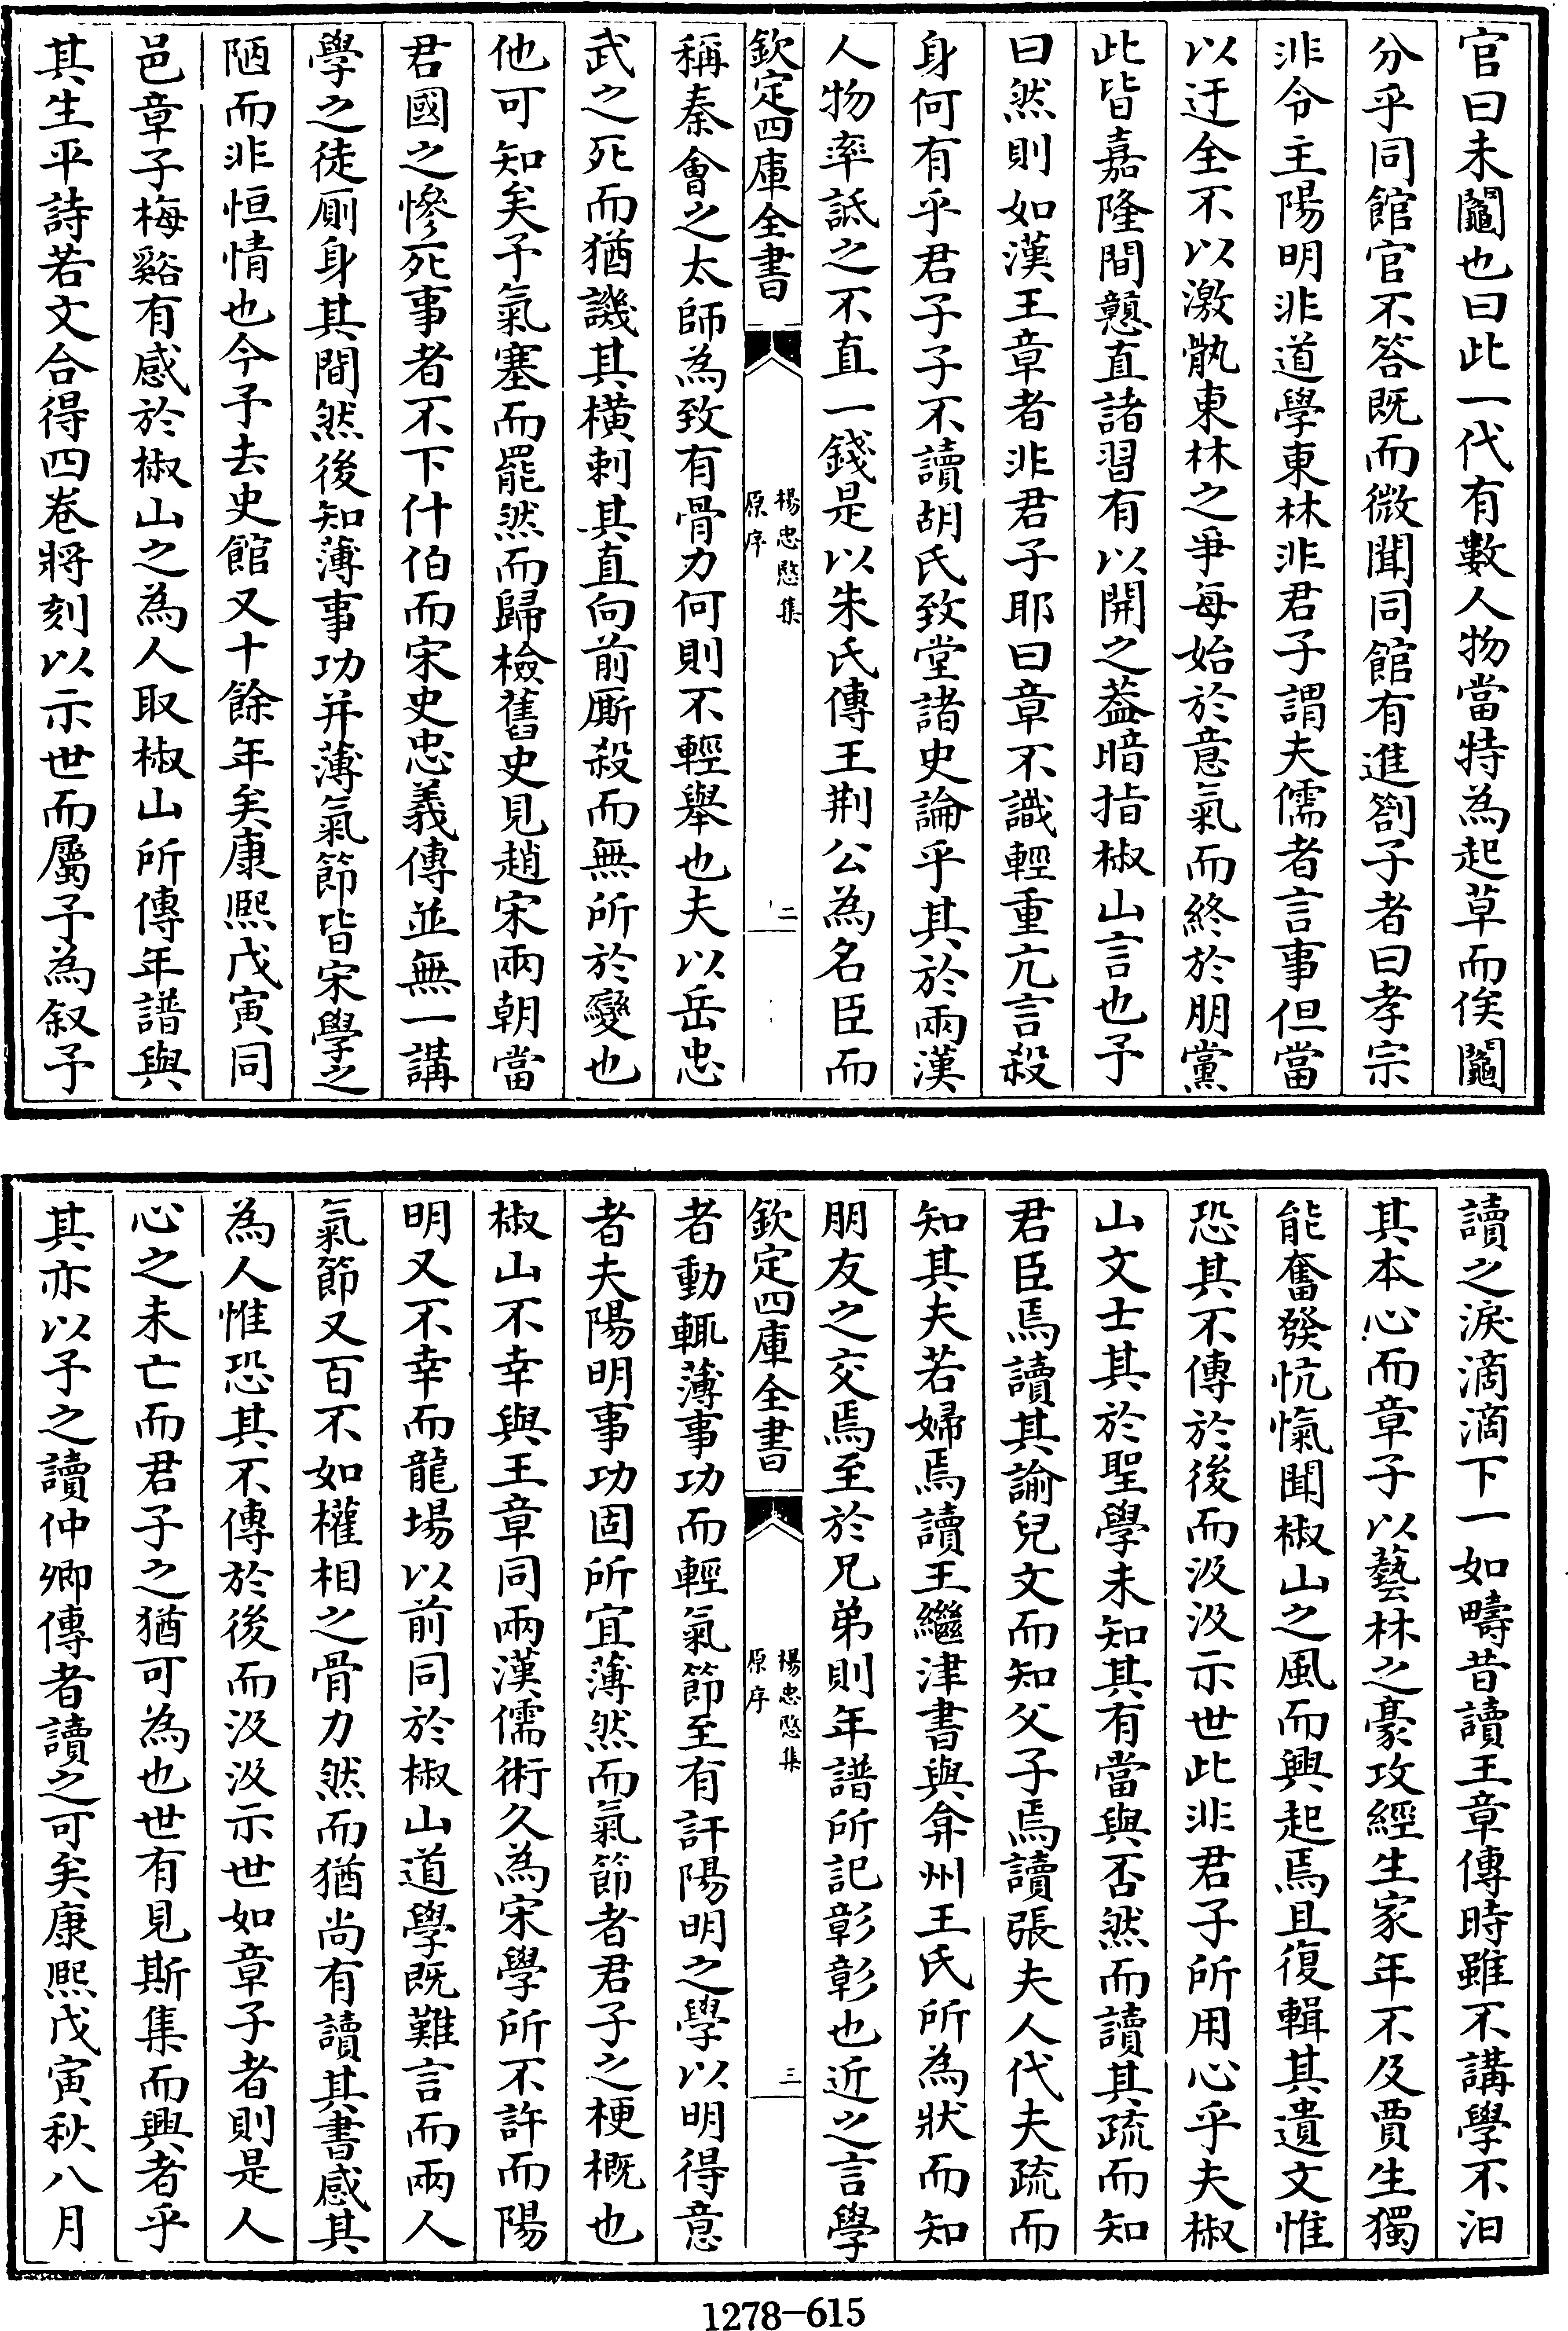 官曰未鬮也曰此一代有數人物當特為起草而俟鬮
分乎同館官不答既而微聞同館有進劄子者曰孝宗
非令主陽明非道學東林非君子謂夫儒者言事但當
以迂全不以激骫東林之爭每始於意氣而終於朋黨
此皆嘉隆間戇直諸習有以開之葢暗指椒山言也予
曰然則如漢王章者非君子耶曰章不識輕重亢言殺
身何有乎君子子不讀胡氏致堂諸史論乎其於兩漢
人物率詆之不直一錢是以朱氏傳王荆公為名臣而
欽定四庫全書
楊忠愍集
原序
二
稱秦會之太師為致有骨力何則不輕舉也夫以岳忠
武之死而猶譏其橫刺其直向前厮殺而無所於變也
他可知矣予氣塞而罷然而歸檢舊史見趙宋兩朝當
君國之慘死事者不下什伯而宋史忠義傳並無一講
學之徒厠身其間然後知薄事功并薄氣節皆宋學之
陋而非恒情也今予去史館又十餘年矣康熙戊寅同
邑章子梅谿有感於椒山之為人取椒山所傳年譜與
其生平詩若文合得四卷將刻以示世而屬予為叙予
讀之淚滴滴下一如疇昔讀王章傳時雖不講學不汩
其本心而章子以藝林之豪攻經生家年不及賈生獨
能奮發忼愾聞椒山之風而興起焉且復輯其遺文惟
恐其不傳於後而汲汲示世此非君子所用心乎夫椒
山文士其於聖學未知其有當與否然而讀其疏而知
君臣焉讀其諭兒文而知父子焉讀張夫人代夫疏而
知其夫若婦焉讀王繼津書與弇州王氏所為狀而知
朋友之交焉至於兄弟則年譜所記彰彰也近之言學
欽定四庫全書
楊忠愍集
原序
三
者動輒薄事功而輕氣節至有訐陽明之學以明得意
者夫陽明事功固所宜薄然而氣節者君子之梗概也
椒山不幸與王章同兩漢儒術久為宋學所不許而陽
明又不幸而龍場以前同於椒山道學既難言而兩人
氣節又百不如權相之骨力然而猶尚有讀其書感其
為人惟恐其不傳於後而汲汲示世如章子者則是人
心之未亡而君子之猶可為也世有見斯集而興者乎
其亦以予之讀仲卿傳者讀之可矣康熙戊寅秋八月
1278-615